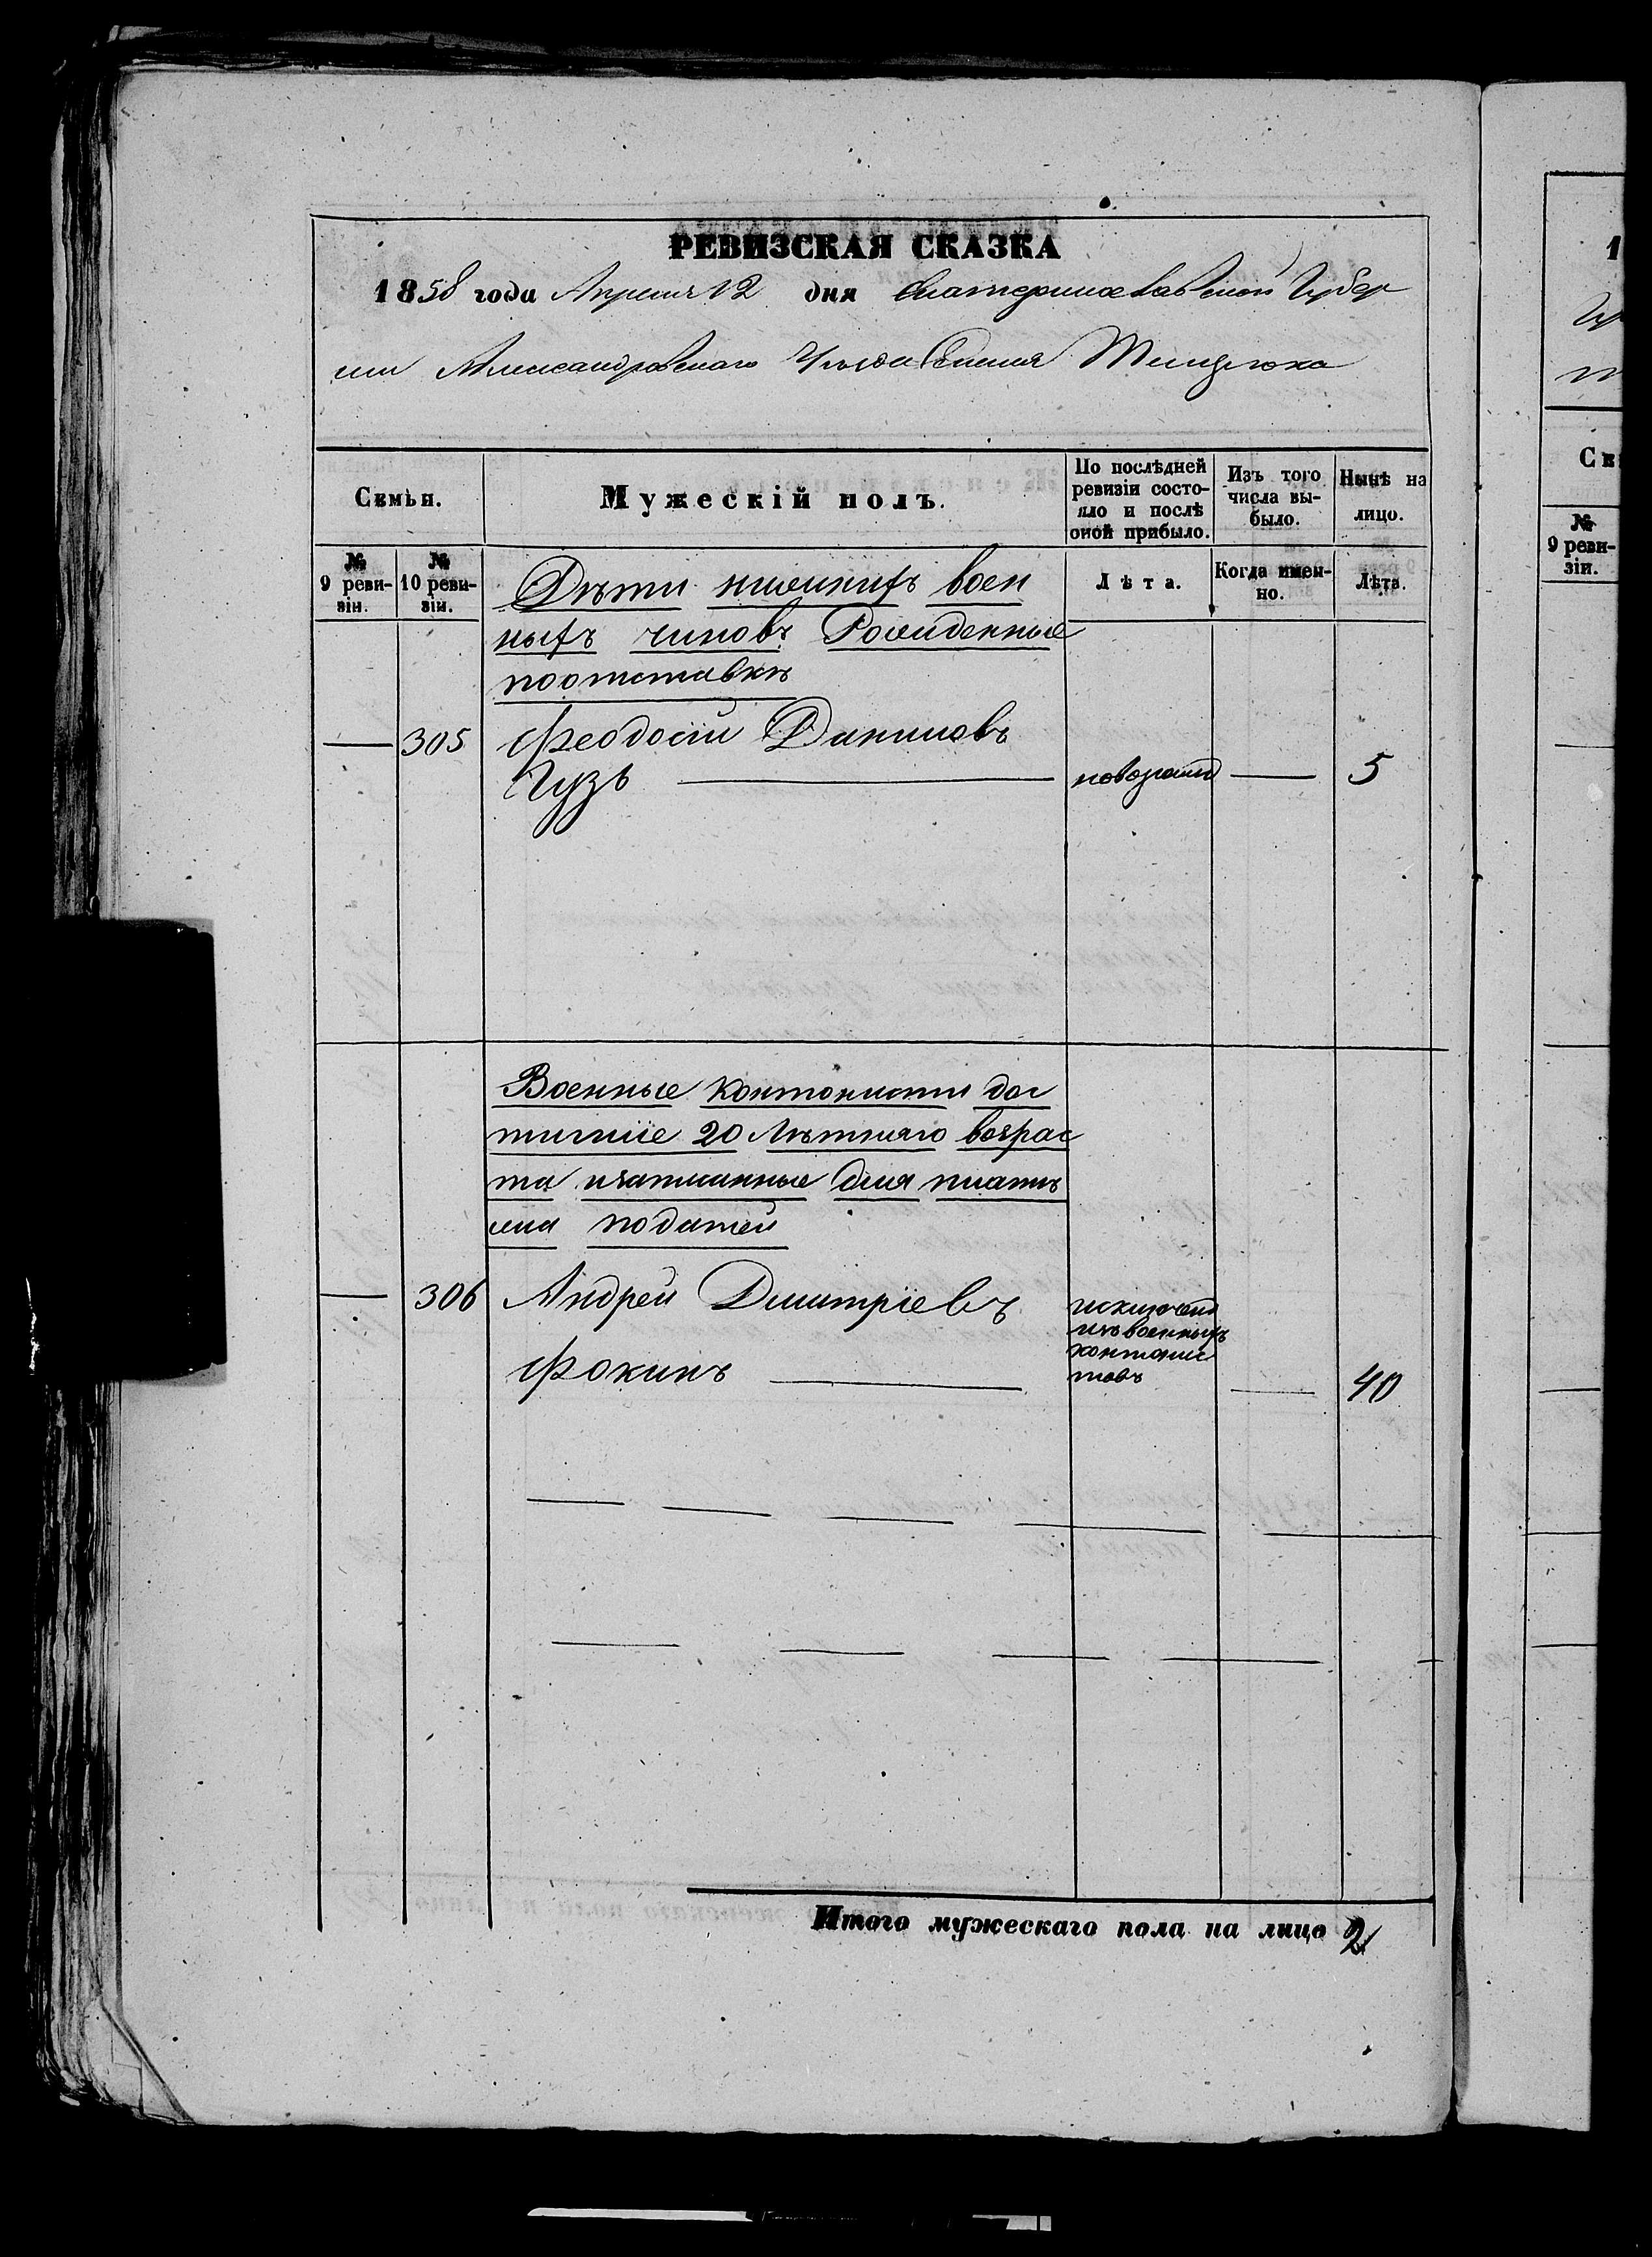 РЕВИЗСКАЯ СКАЗКА
1858 года Апреля 12 дня Екатеринославской Губер
нии Александровскаго Уезда Селения Темрюка
Семьи.
Мужескій полъ.
По послѣдней ревизіи состо-
яло и послѣ
оной прибыло.
Изъ того
числа вы-
было.
Нынѣ на
лицо.
№
9 реви-
зіи.
№
10 реви-
зіи.
Лѣта.
Когда имен-
но.
Лѣта.
Дѣти нижнихъ воен
ныхъ чиновъ Рожденные
поотставкѣ
— 305 Феодосій Даниловъ
Гузь — новорожд — 5
Военные Контонисти дос
тигшіе 20 Лѣтняго возрас
та изаписанные для платѣ
жа податей
— 306 Андрей Дмитріевъ
исключенъ
изъ военныхъ
контонис
товъ
Фокинъ — — 40
Итого мужескаго пола на лицо 2
1
Се
№
9 реви-
зіи.